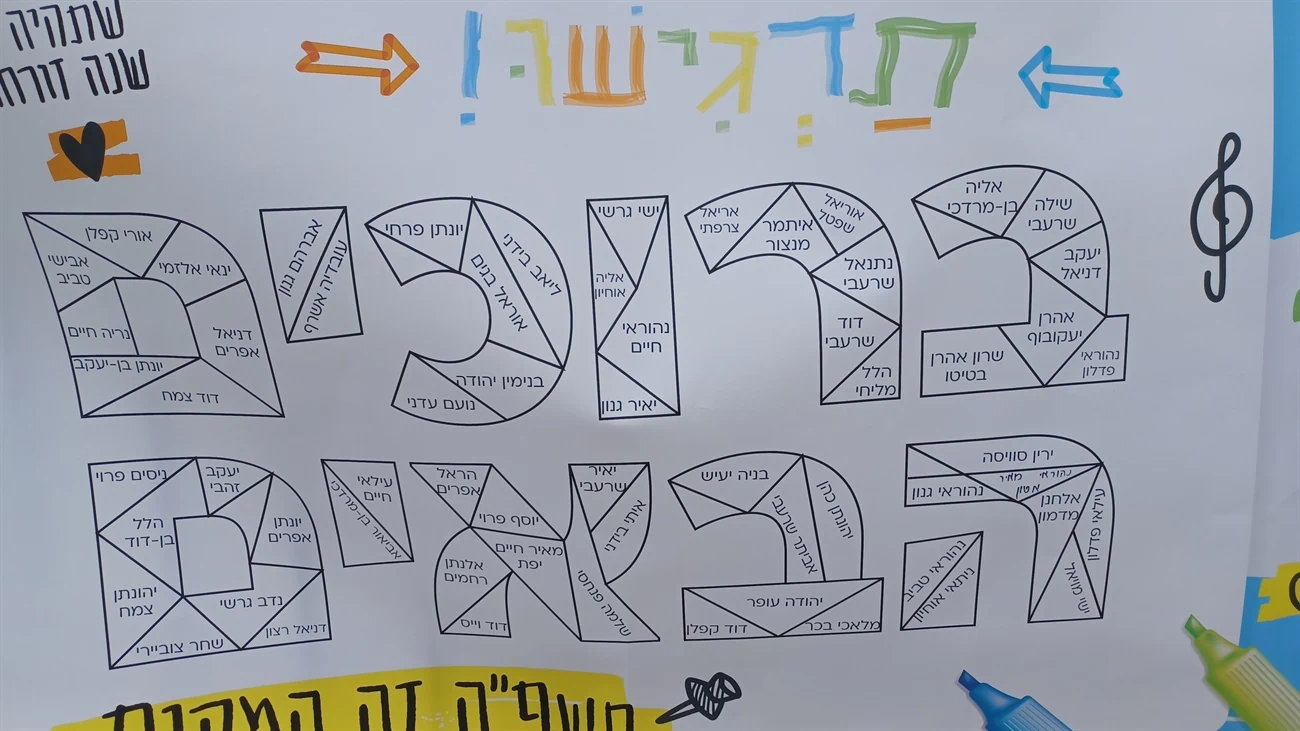 תַדְּגִישׁוּ!
שתהיה
שנה זורחת
אליה
בן-מרדכי
שילה
שרעבי
יעקב
דניאל
אהרן
יעקובוף
נהוראי
פדלון
שרון אהרן
בטיטו
אריאל
צרפתי
איתמר
מנצור
אוריאל
שפטל
נתנאל
שרעבי
דוד
שרעבי
הלל
מליחי
ישי גרשי
אליה
אוחיון
נהוראי
חיים
יאיר גנון
יונתן פרחי
ליאב בידני
אוראל בגים
בנימין יהודה
נועם עדני
אברהם גנון
עובדיה אשרף
אורי קפלן
ינאי אלזמי
אבישי
טביב
דניאל
אפרים
נריה חיים
יונתן בן-יעקב
דוד צמח
ירין סוויסה
נהוראי מאיר
אטון
נהוראי גנון
אלחנן
מדמון
עילאי פדלון
ישי מויאל
נהוראי טביב
ניתאי אוחיון
בניה יעיש
יהונתן כהן
אביתר שרעבי
יהודה עופר
מלאכי בכר
דוד קפלן
יאיר
שרעבי
איתי בידני
הראל
אפרים
יוסף פרוי
מאיר חיים
יפת
אלנתן
רחמים
דוד וייס
שלמה פנחסי
עילאי
חיים
אביאור בן-מרדכי
ניסים פרוי
יעקב
זהבי
יונתן
אפרים
הלל
בן-דוד
יהונתן
צמח
נדב גרשי
דניאל רצון
שחר צוביירי
תשפ"ה זה המקום